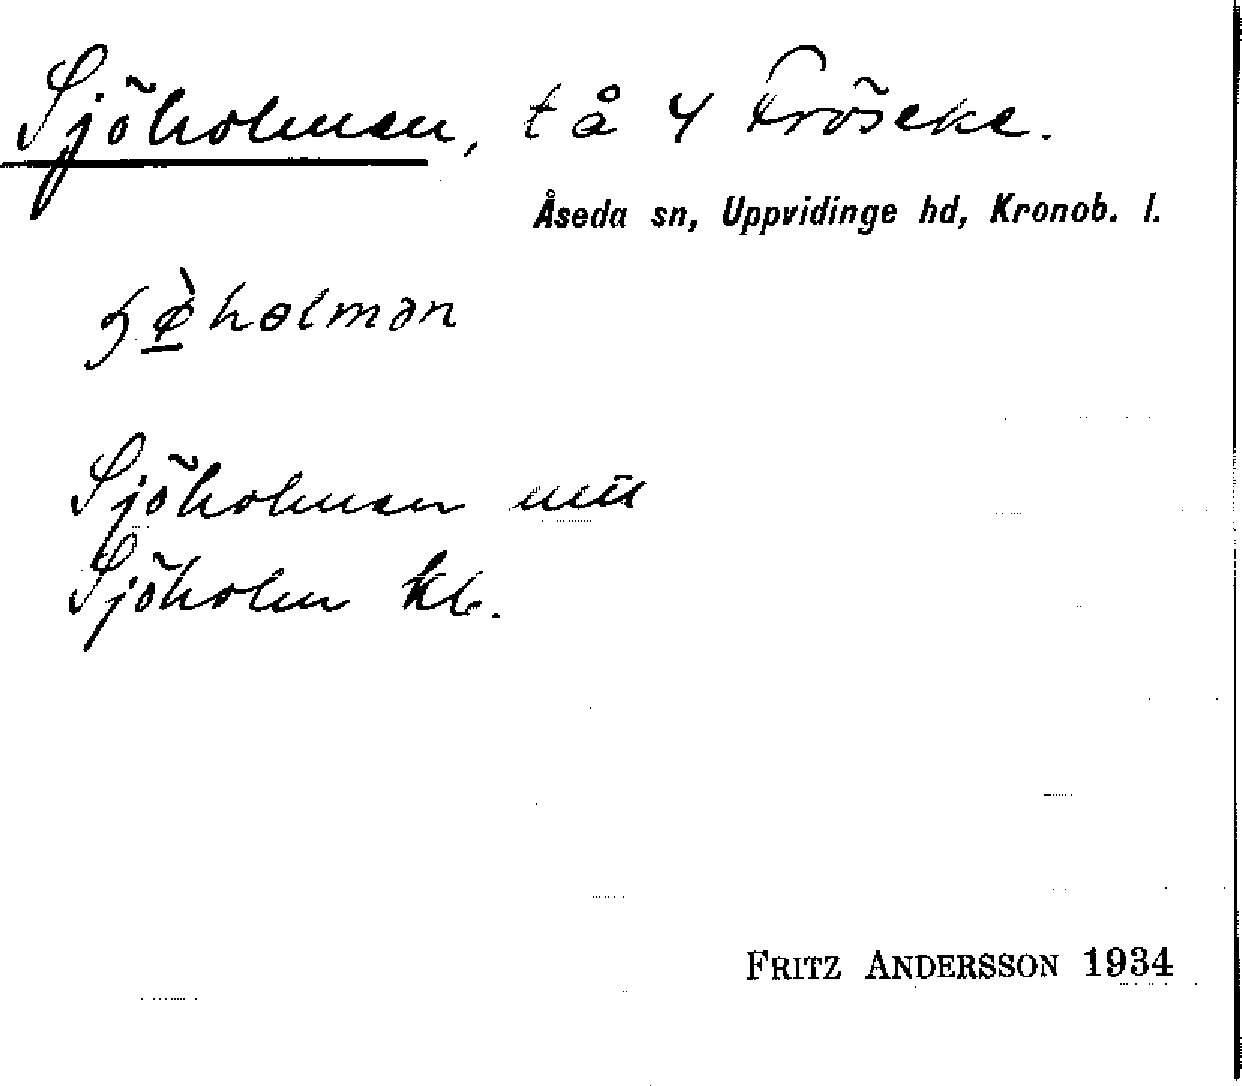 Sjöholmen, t å 4 Fröseke.
Åseda sn, Uppvidinge hd, Kronob. l.
Sjöholmen
Sjöholm kb.
FRITZ ANDERSSON 1934